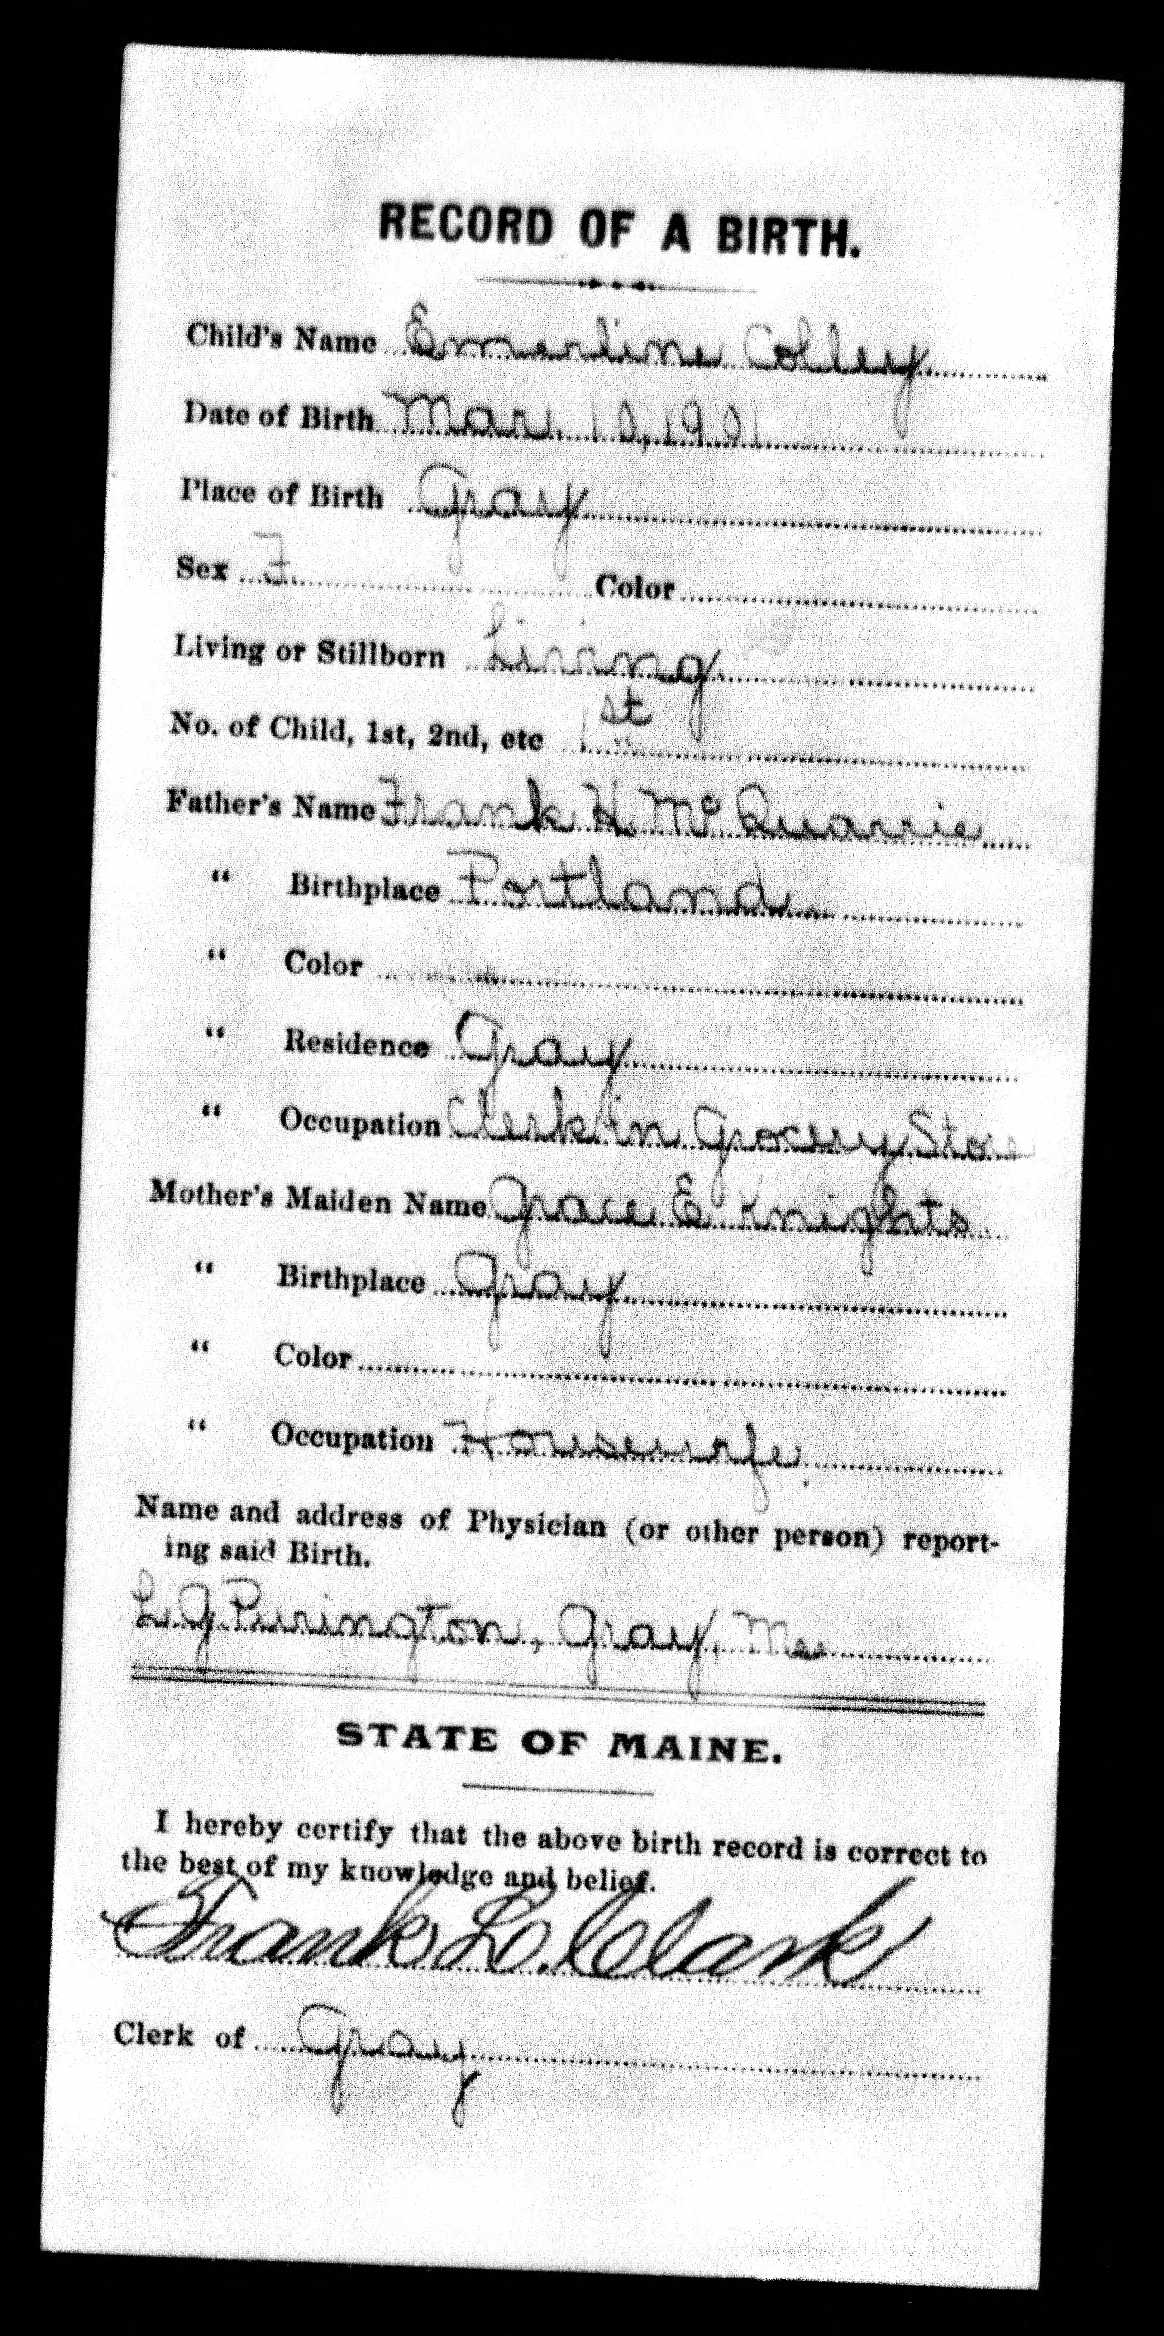 RECORD OF A BIRTH.
Child's Name Emerline Colley
Date of Birth Mar. 10, 1901
Place of Birth Gray
Sex F. Color
Living or Stillborn Living
No. of Child, 1st, 2nd, etc 1st
Father's Name Frank H. Mc Quarrie
" Birthplace Portland
" Color
" Residence Gray
" Occupation Clerk in Grocery Store
Mother's Maiden Name Grace E Knights
" Birthplace Gray
" Color
" Occupation Housewife.
Name and address of Physician (or other person) report-
ing said Birth.
L. G. Purington, Gray, Me
STATE OF MAINE.
I hereby certify that the above birth record is correct to
the best of my knowledge and belief.
Frank L. Clark
Clerk of Gray